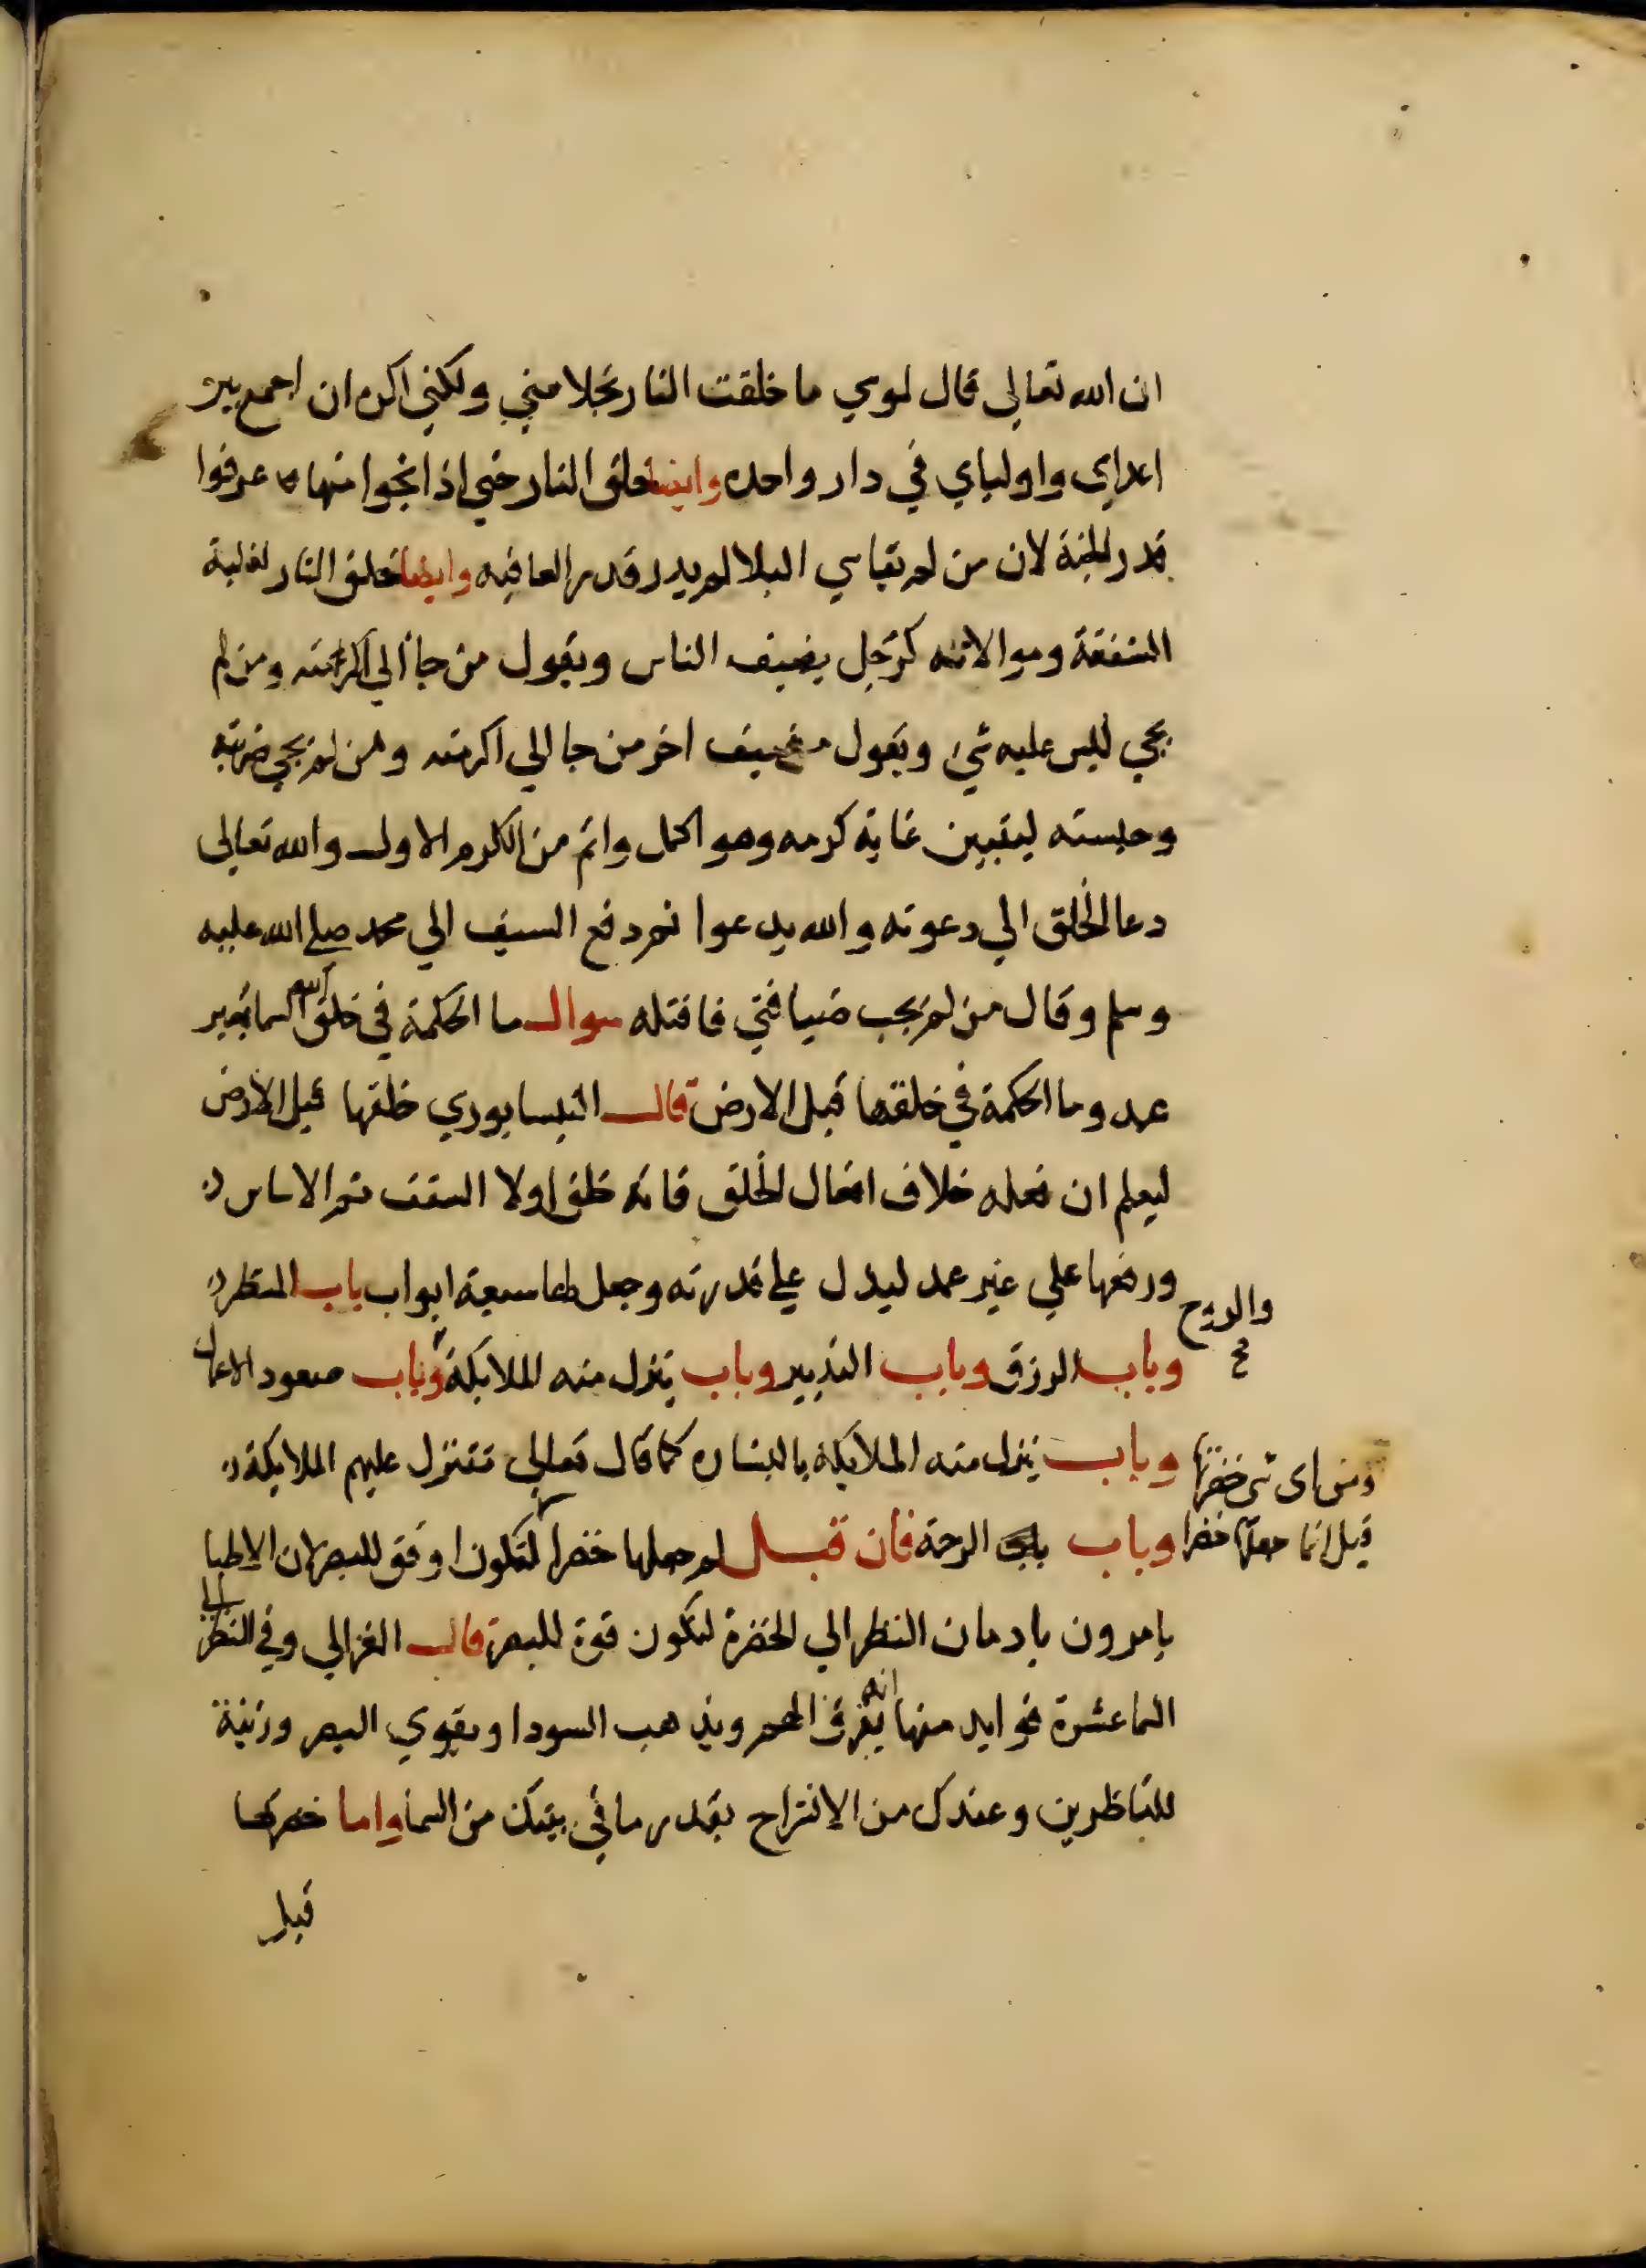 ان الله تعالى قال لموسي ما خلقت النار بخلا مني ولكني اكره ان اجمع بين
اعداي واولياي في دار واحده وايضا خلق النار حتي اذا نجوا منها عرفوا
قدر الجنة لان من لم يقاسي البلا لم يدر قدر العافيه وايضا خلق النار لغلبة
الشفقة وموالاته كرجل يضيف الناس ويقول من جا الي اكرمته ومن لم
يجي ليس عليه شي ويقول مضيف اخر من جا الي اكرمته ومن لم يجي ضربته
وحبسته ليتبين غاية كرمه وهو اكمل واتم من الكرم الاول والله تعالي
دعا الخلق الي دعوته والله يدعوا ثم دفع السيف الي محمد صلي الله عليه
وسلم وقال من لم يجب ضيافتي فاقتله سوال ما الحكمة في خلق الله السما بغير
عمد وما الحكمة في خلقها قبل الارض قال النيسابوري خلقها قبل الارض
ليعلم ان فعله خلاف افعال الخلق فانه خلق اولا السقف ثم الاساس
ورفعها علي غير عمد ليدل علي قدرته وجعل لها سبعة ابواب باب المطر
والروح
صح
وباب الرزق وباب التدبير وباب ينزل منه الملايكة وباب صعود الاعمال
وباب ينزل منه الملايكة بالبشاره كما قال تعالي تتنزل عليهم الملايكة
ومن اى شي خضرتها
قيل انما جعلها خضرا
وباب الرحمة فان قيل لم جعلها خضرا لتكون اوفق للبصر لان الاطبا
يامرون بادمان النظر الي الخضرة لتكون قوة للبصر قال الغزالي وفي النظر الي
السما عشرة فوايد منها انه يفرق الهم ويذهب السودا ويقوي البصر وزينة
للناظرين وعندك من الانشراح بقدر ما في بيتك من السما واما خضرتها
قيل